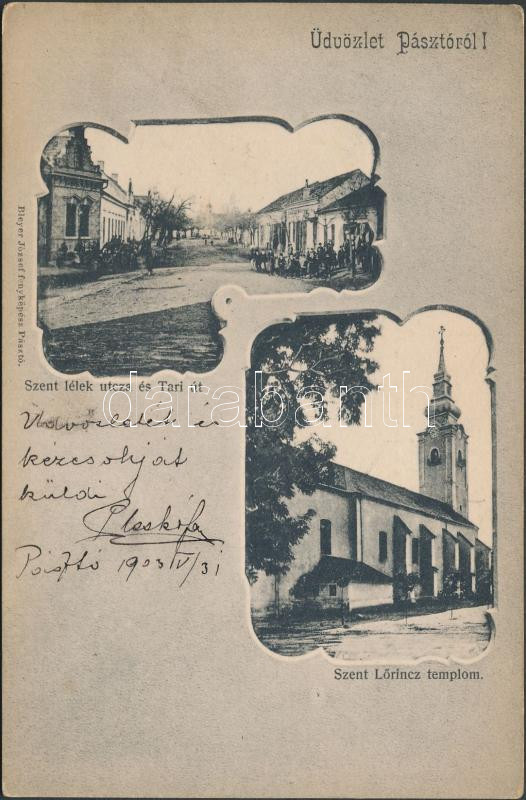 Üdvözlet Pásztóról!
Bleyer József fényképész Pásztó.
Szent lélek utcza és Tari út
darabanth
Üdvözletek és
kézcsókját
küldi
Pásztó 1903 IV/31
Szent Lőrincz templom.